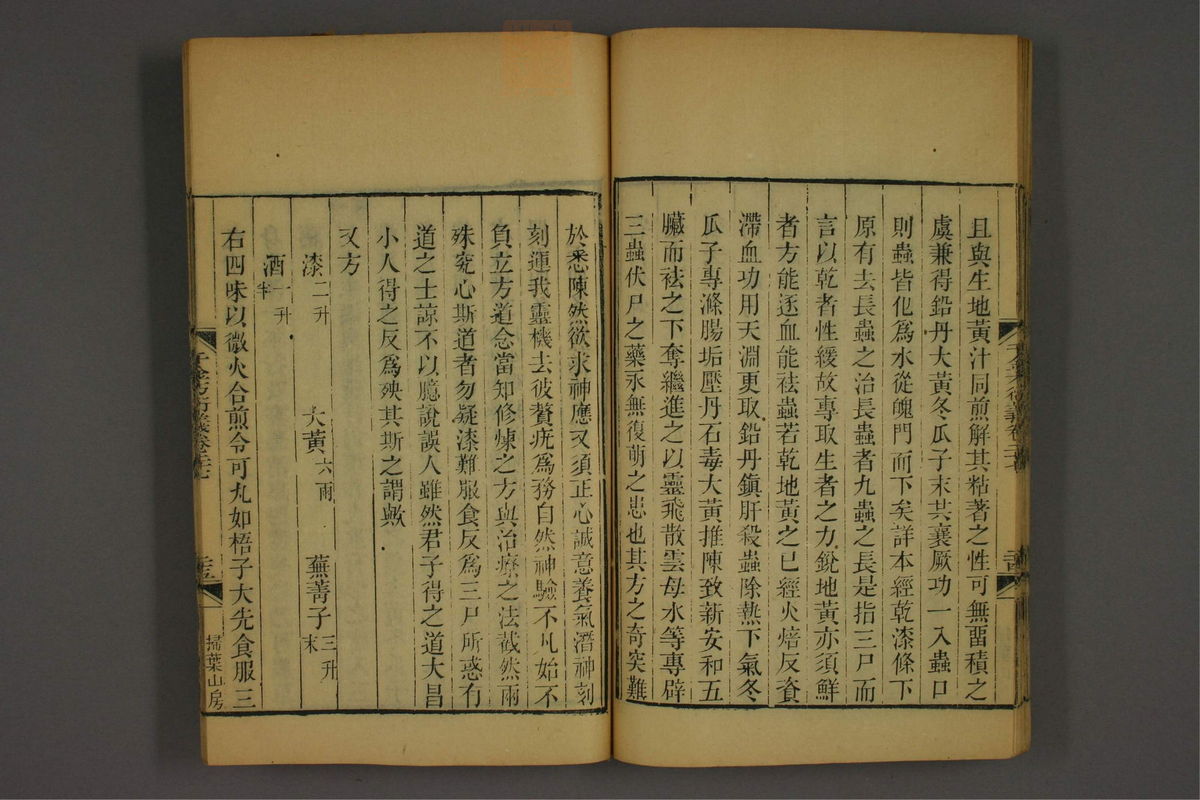 且與生地黃汁同煎解其粘著之性可無畱積之
虞兼得鉛丹大黃冬瓜子末共襄厥功一入蟲口
則蟲皆化爲水從魄門而下矣詳本經乾漆條下
原有去長蟲之治長蟲者九蟲之長是指三尸而
言以乾者性緩故專取生者之力銳地黃亦須鮮
者方能逐血能祛蟲若乾地黃之已經火焙反資
滯血功用天淵更取鉛丹鎮肝殺蟲除熱下氣冬
瓜子專滌腸垢壓丹石毒大黃推陳致新安和五
臟而祛之下奪繼進之以靈飛散雲母水等專辟
三蟲伏尸之藥永無復萌之患也其方之奇突難
於悉陳然欲求神應又須正心誠意養氣潛神刻
刻運我靈機去彼贅疣爲務自然神驗不凡始不
負立方道念當知修煉之方與治療之法截然兩
殊究心斯道者勿疑漆難服食反爲三尸所惑有
道之士諒不以臆說誤人雖然君子得之道大昌
小人得之反爲殃其斯之謂歟
又方
漆二升 大黃六兩 蕪菁子三升末
酒一升半
右四味以微火合煎令可丸如梧子大先食服三
千金方衍義卷二十七
掃葉山房